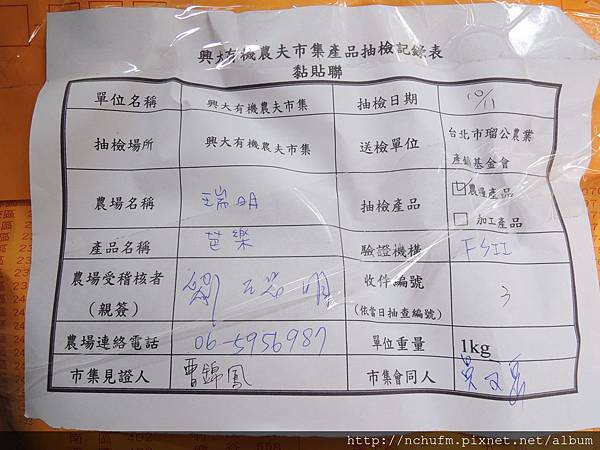 興大有機農夫市集產品抽檢記錄表
黏貼聯
單位名稱 興大有機農夫市集 抽檢日期 10/11
抽檢場所 興大有機農夫市集 送檢單位 台北市瑠公農業
產銷基金會
農場名稱 瑞明 抽檢產品 ☑農產品
☐ 加工產品
產品名稱 芭樂 驗證機構 FSII
農場受稽核者
(親簽) 劉瑞明 收件編號
(依當日抽查編號) 3
農場連絡電話 06-5956987 單位重量 1kg
市集見證人 曹錦鳳 市集會同人
南區 402
http://nchufm.pixnet.net/album